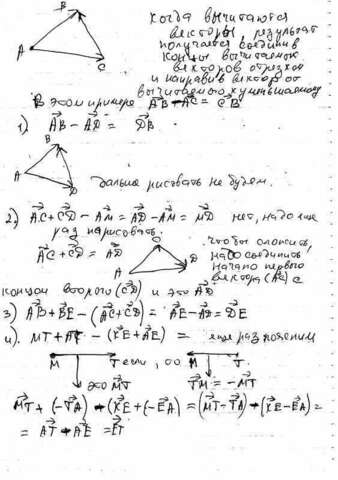 Когда вычитаются
векторы, результат
получается соединив
концы вычитаемых
векторов отрезком
и направив вектор от
вычитаемого к уменьшаемому
В этом примере AB - AC = CB
B
A
C
1) AB - AD = DB
B
A
D
дальше рисовать не будем.
2) AC + CD - AM = AD - AM = MD нет, надо еще
раз нарисовать.
AC + CD = AD
C
D
A
чтобы сложить,
надо соединить
начало первого
вектора (AC) с
концом второго (CD) и это AD
3) AB + BE - (AC + CD) = AE - AD = DE
4). MT + AT - (KE + AE) = еще раз поясним
M T если, то M T.
это MT TM = -MT
MT + (-TA) - (KE + (-EA) = (MT - TA) - (KE - EA) =
= AT - AE = ET